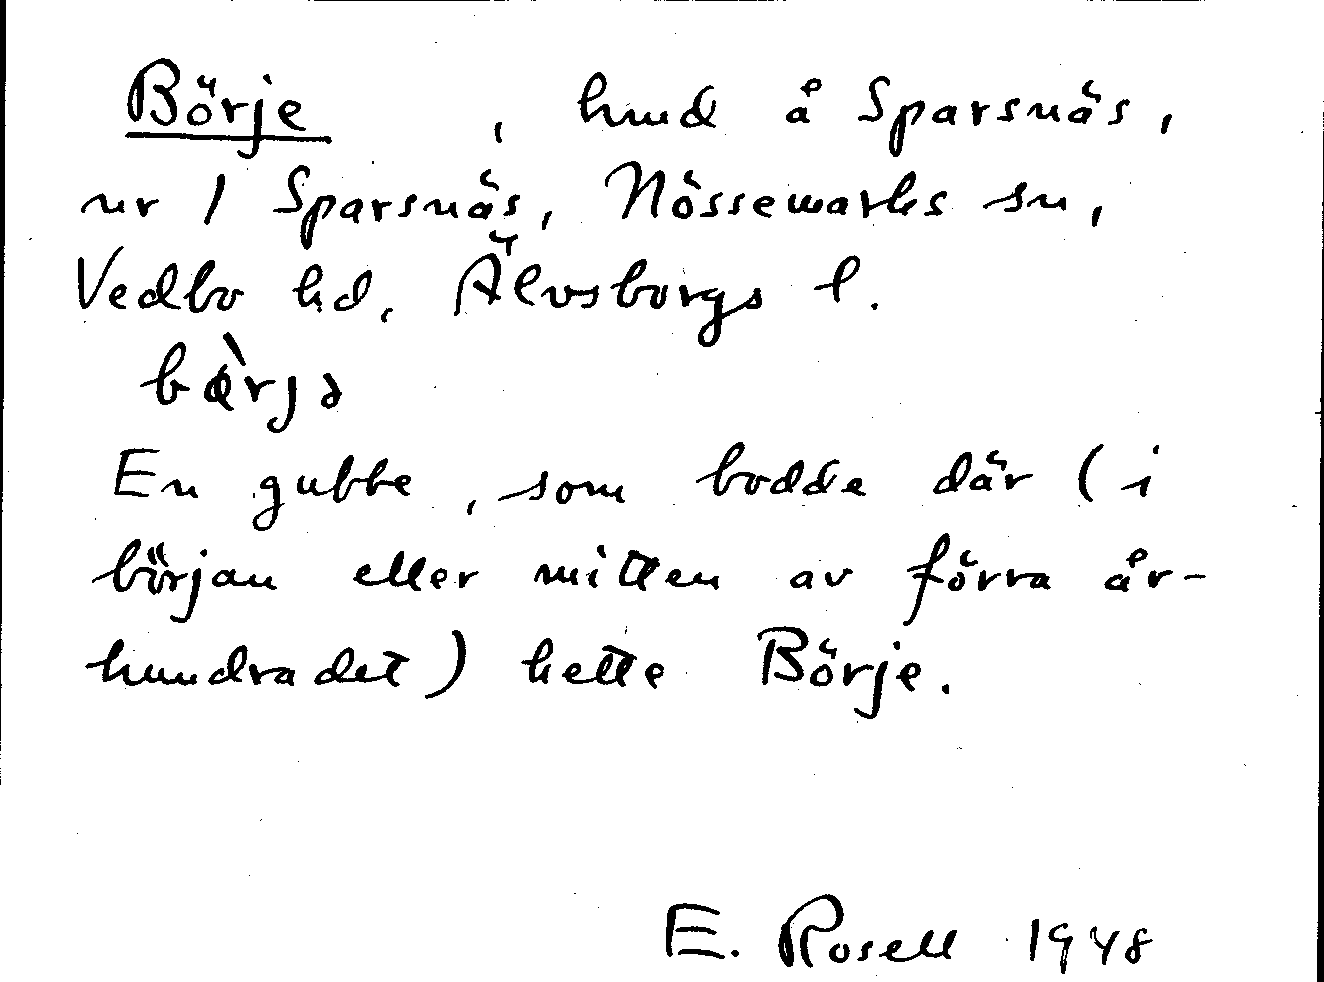 Börje , hund å Sparsnäs,
nr 1 Sparsnäs, Nössemarks sn,
Vedbo hd, Älvsborgs l.
bø̀rjə
En gubbe, som bodde där (i
början eller mitten av förra år-
hundradet) hette Börje.
E. Rosell 1948